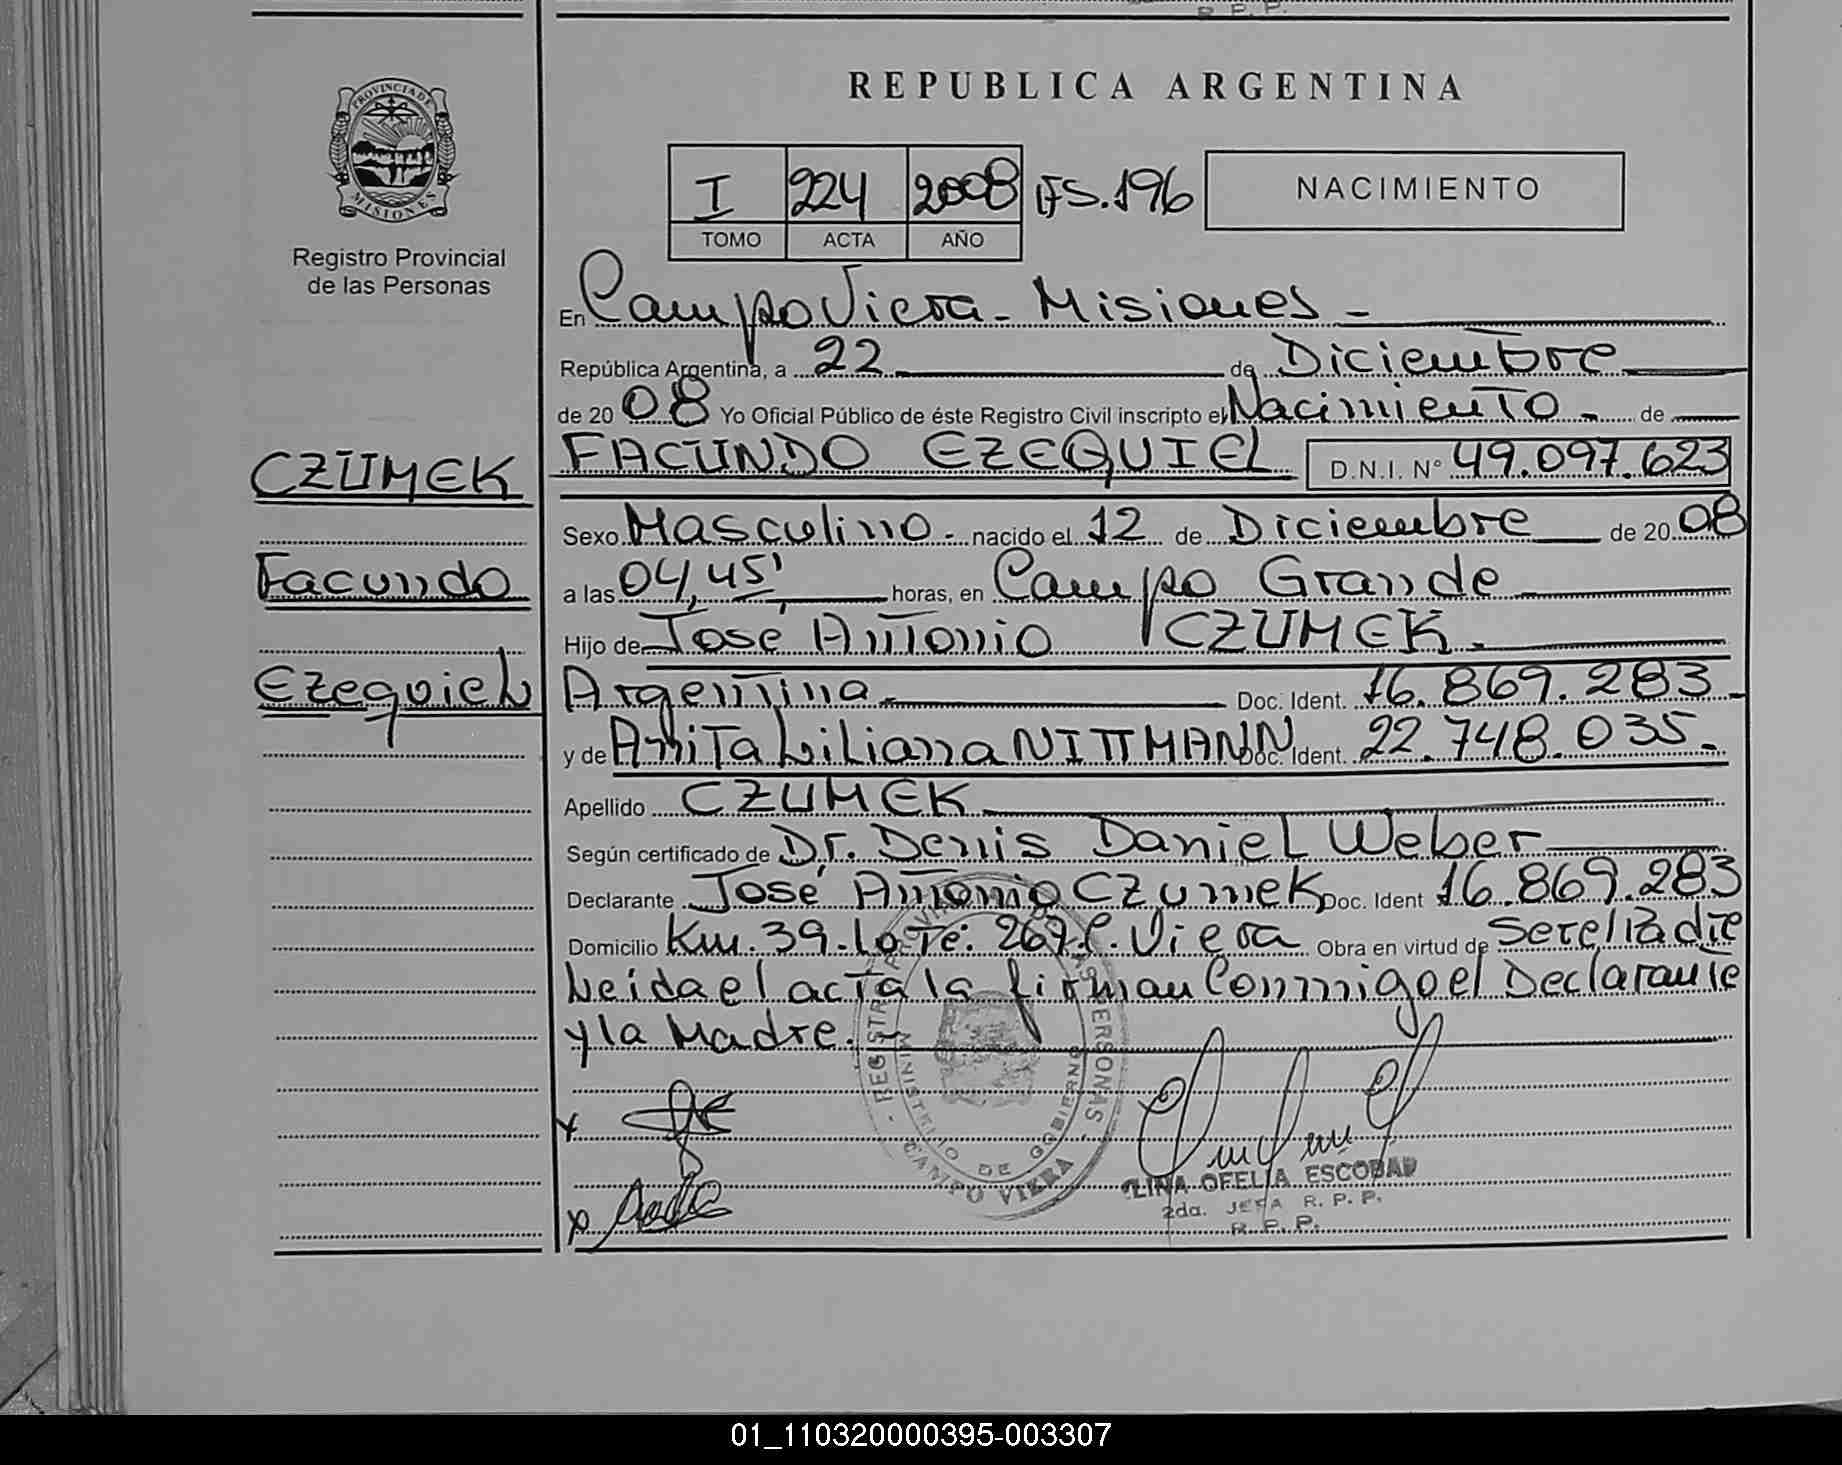 R. P. P.
PROVINCIA DE
MISIONES
Registro Provincial
de las Personas
REPUBLICA ARGENTINA
I 224 2008 FS.196
TOMO ACTA AÑO
NACIMIENTO
En Campo Viera - Misiones -
República Argentina, a 22 de Diciembre
de 20 08 Yo Oficial Público de éste Registro Civil inscripto el Nacimiento - de
CZUMEK
FACUNDO EZEQUIEL D.N.I. N° 49.097.623
Sexo Masculino - nacido el 12 de Diciembre de 20 08
Facundo
a las 04,45' horas, en Campo Grande
Hijo de José Antonio CZUMEK -
Ezequiel
Argentina - Doc. Ident. 16.869.283 -
y de Anita Liliana NITTMANN Doc. Ident. 22.748.035 -
Apellido CZUMEK
Según certificado de Dr. Denis Daniel Weber
Declarante José Antonio Czumek Doc. Ident 16.869.283
Domicilio Km. 39 - Lote: 267 C. Viera Obra en virtud de Ser el Padre
Leida el acta la firman Conmigo el Declarante
y la Madre. -
REGISTRO PROVINCIAL DE LAS PERSONAS
MINISTERIO DE GOBIERNO
CAMPO VIERA
x
x
LINA OFELIA ESCOBAR
2da. JEFA R. P. P.
R. P. P.
01_110320000395-003307